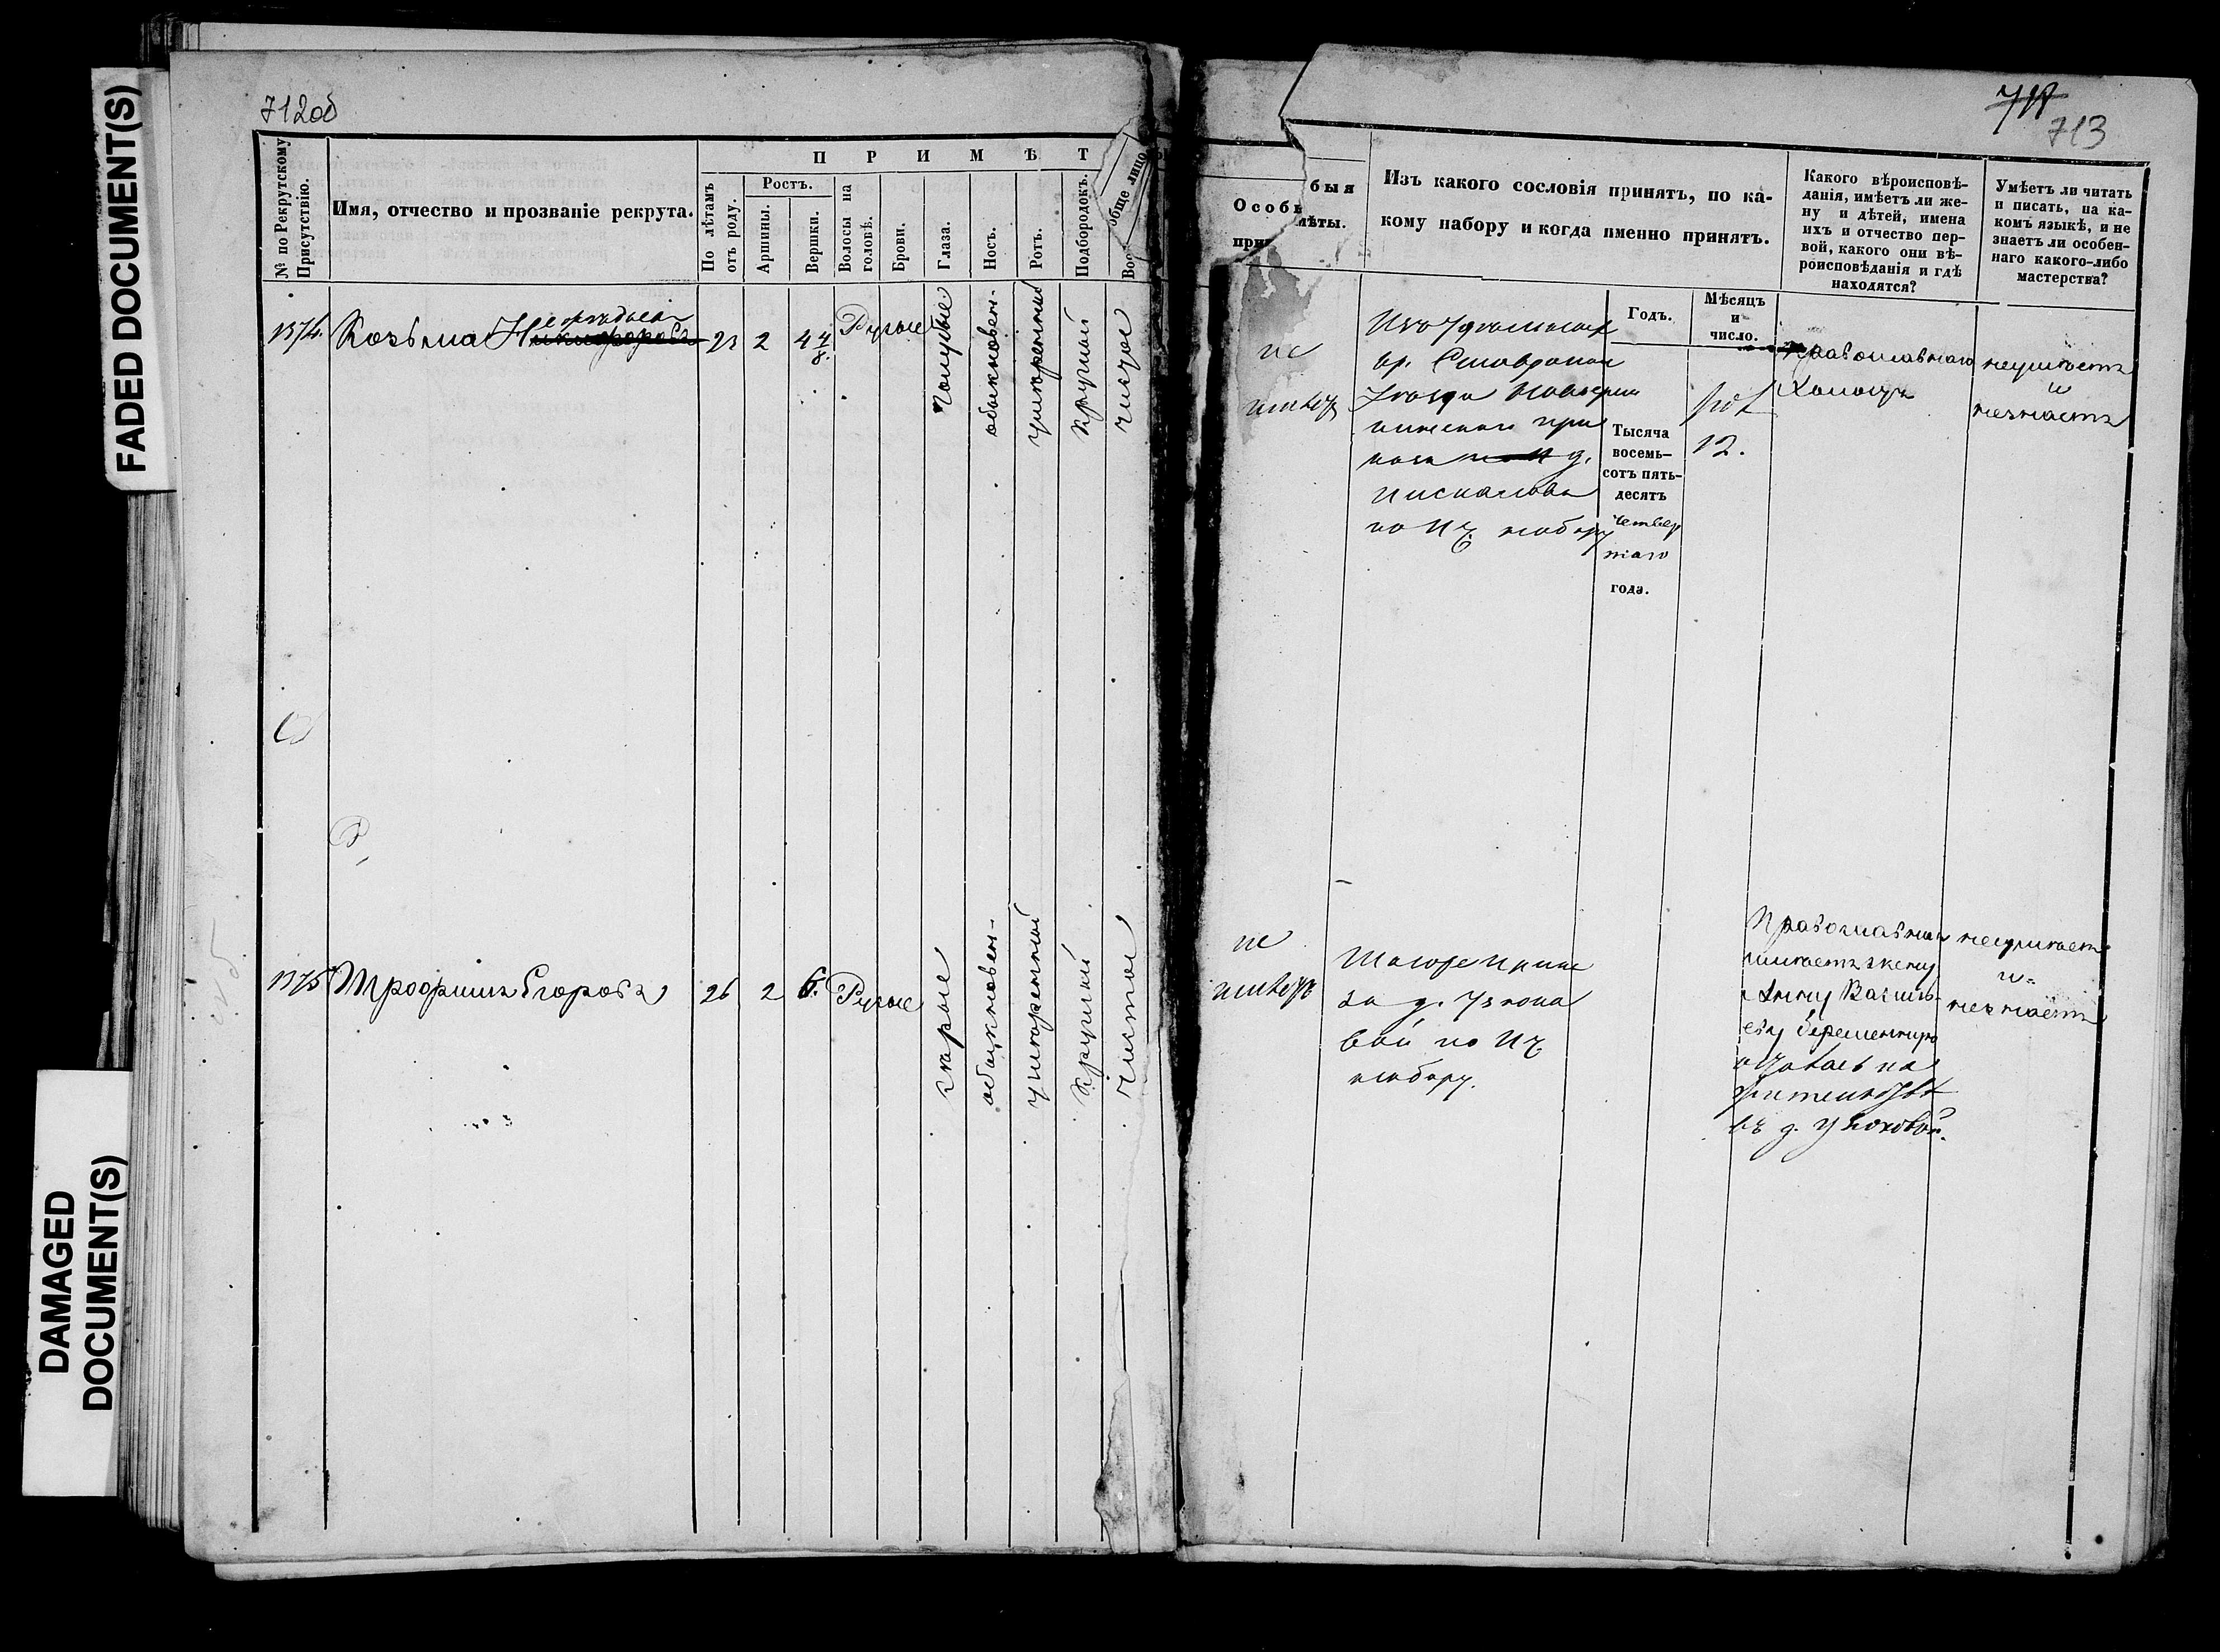 FADED DOCUMENT(S)
DAMAGED
DOCUMENT(S)
712об
№ по Рекрутскому
Присутствію.
Имя, отчество и прозваніе рекрута.
П Р И М Ѣ Т
По лѣтамъ
отъ роду.
Ростъ.
Аршины.
Вершки.
Волосы на
головѣ.
Брови.
Глаза.
Носъ.
Ротъ.
Подбородокъ.
обще лицо
1374.
Козьма
23
2
4 4/8.
Русые
Голубые.
обыкновен-
умѣренный
круглой
чистое
1375
Трофимъ Егоровъ
26
2
6.
Русые
карые
обыкновен-
умѣренный
круглый
чистое
713
Особ
быя
мѣты.
Изъ какого сословія принятъ, по ка-
кому набору и когда именно принятъ.
Какого вѣроисповѣ-
данія, имѣетъ ли же-
ну и дѣтей, имена
ихъ и отчество пер-
вой, какого они вѣ-
роисповѣданія и гдѣ
находятся?
Умѣетъ ли читать
и писать, на ка-
комъ языкѣ, и не
знаетъ ли особен-
наго какого-либо
мастерства?
Годъ.
Мѣсяцъ
и
число.
не
имѣетъ
Изъ удѣльныхъ
кр. Ставропол
Уѣзда
при
каза д.
Пискалова
по Ич. набору
Тысяча
восемь-
сотъ пять-
десятъ
четвер
таго
года.
12.
Православнаго
Холостъ
неумѣетъ
и
незнаетъ
не
имѣетъ
Тогоже прика
за д. Узюко
вой по Ич.
набору.
Православнаго
имѣетъ жену
Анну Василь-
еву беременную
осталась на
жительствѣ
въ д. Узюковой.
неумѣетъ
и
незнаетъ